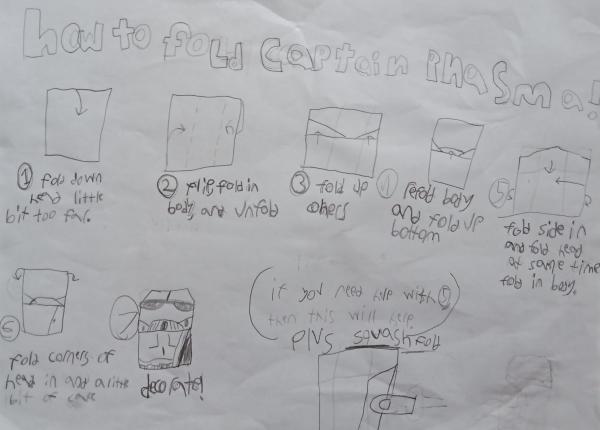 How to fold Captain Phasma!
① fold down
head little
bit too far.
② flip fold in
body, and unfold
③ fold up
corners
④ refold body
and fold up
bottom
⑤
fold side in
and fold head
at same time
fold in body.
⑥
fold corners of
head in and a little
bit of
⑦
decorate!
if you need help with ⑤
then this will help
PLUS squash fold